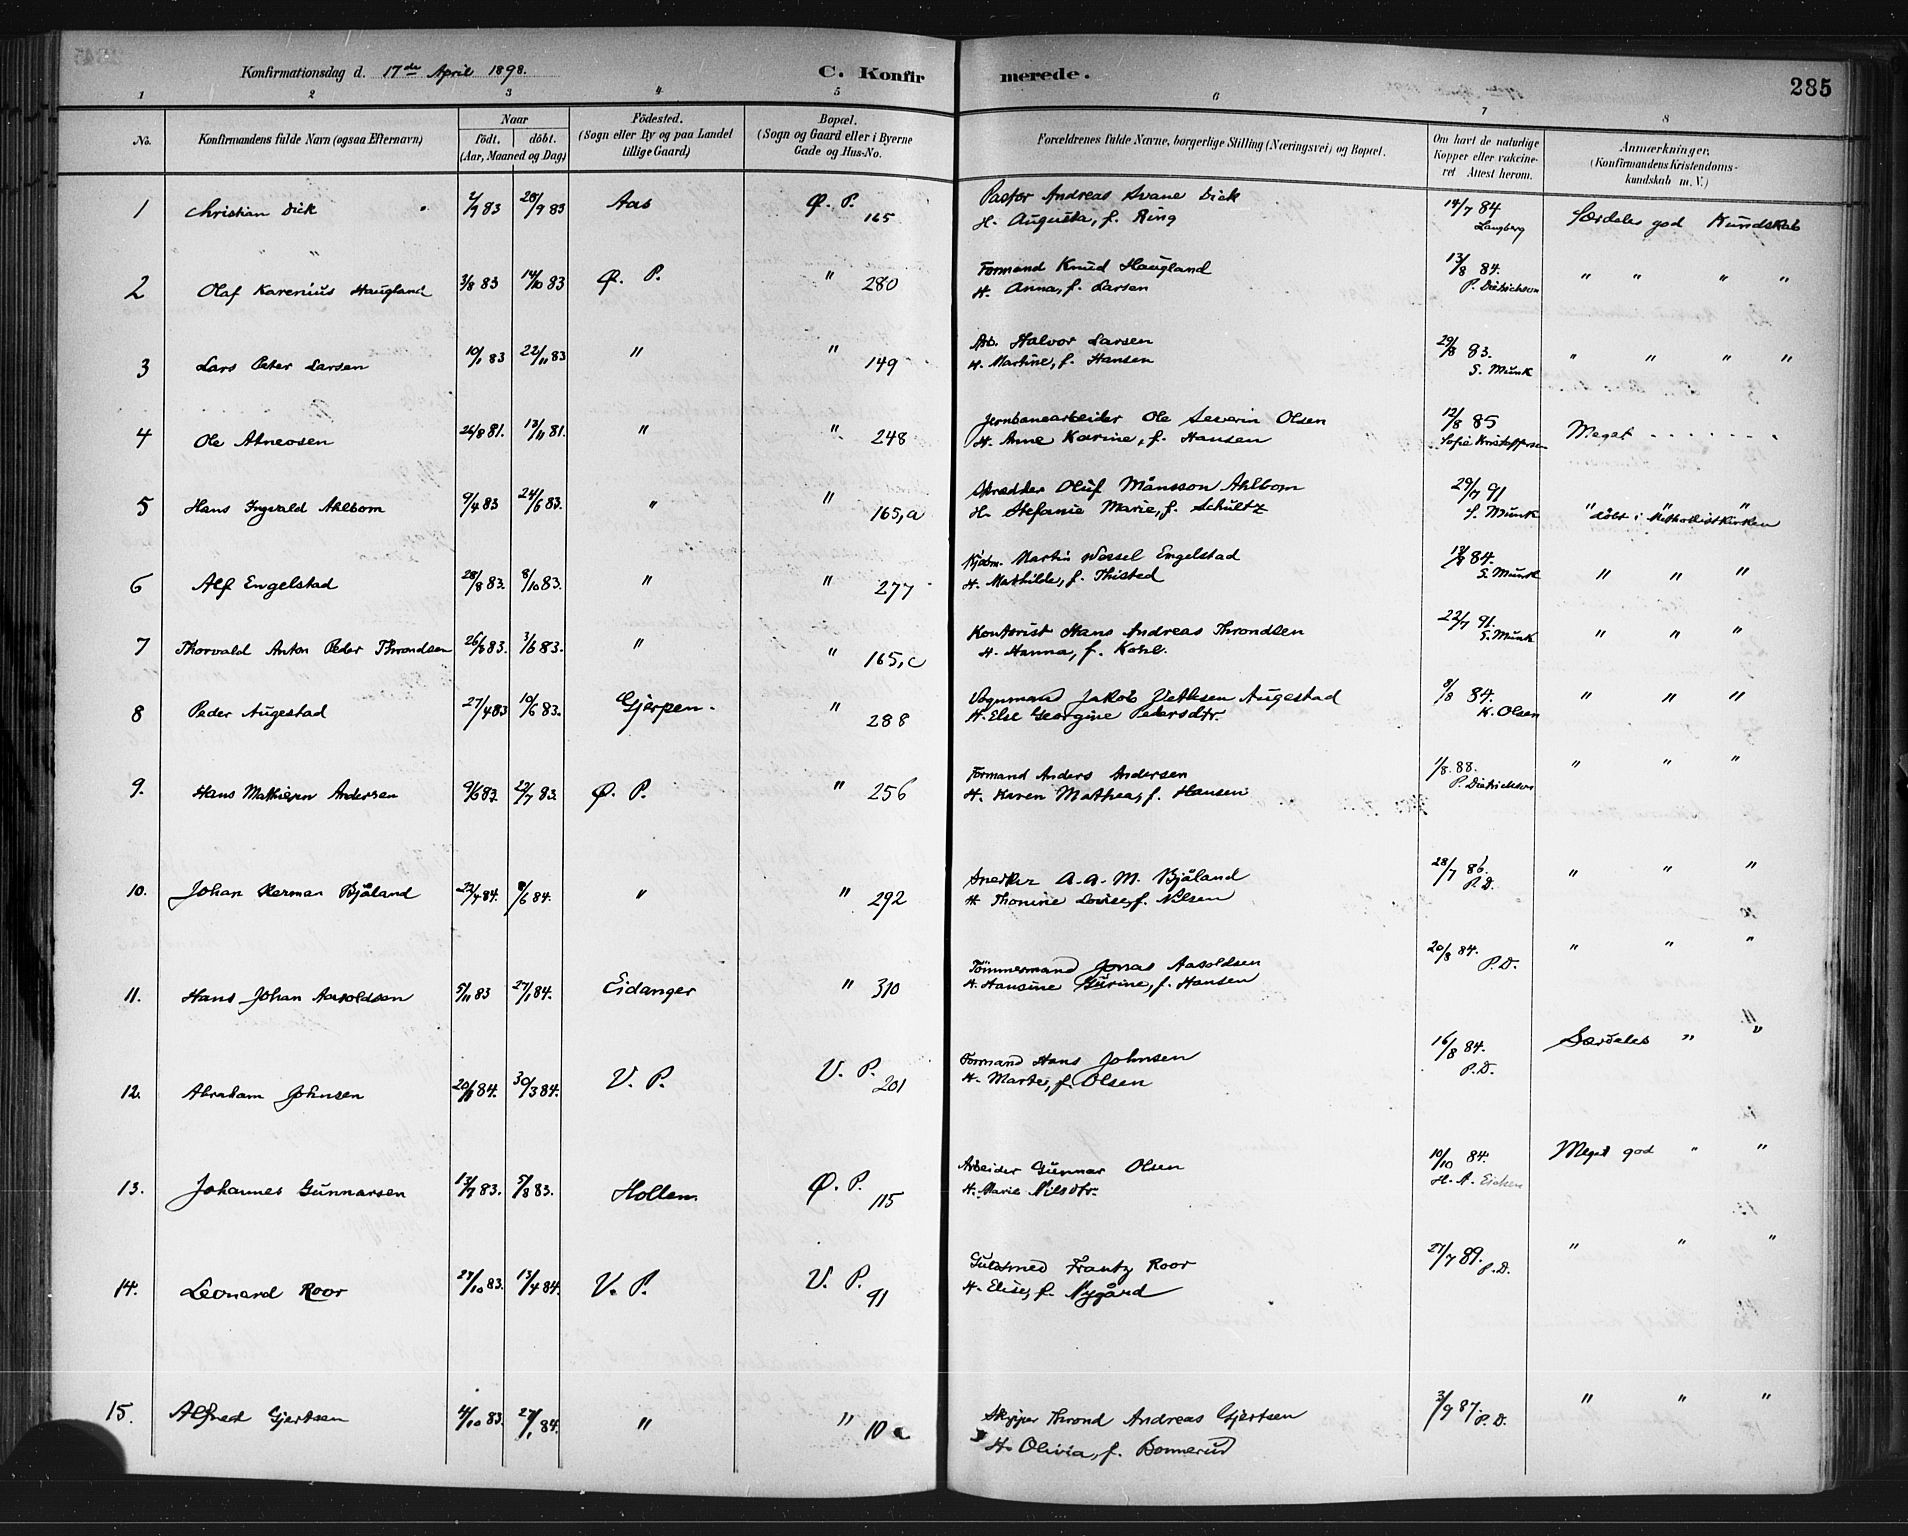 Konfirmationsdag d. 17de April 1898. C. Konfirmerede. 285
1 2 3 4 5 6 7 8
No. Konfirmandens fulde Navn (ogsaa Efternavn) Naar födt. döbt. (Aar, Maaned og Dag) Födested. (Sogn eller By og paa Landet tillige Gaard) Bopæl. (Sogn og Gaard eller i Byerne Gade og Hus-No. Forældrenes fulde Navne, borgerlige Stilling (Næringsvei) og Bopæl. Om havt de naturlige Kopper eller vakcineret Attest herom. Anmærkninger. (Konfirmandens Kristendomskundskab m. V.)
1 Christian Dick 2/7 83 28/9 83 Aas Ø. P. 165 Pastor Andreas Svane Dick 14/7 84 Særdeles god Kundskab
H. Augusta, f. Ring Langberg
2 Olaf Karenius Haugland 3/8 83 14/10 83 Ø. P. " 280 Formand Knud Haugland 13/8 84. " " " "
H. Anna, f. Larsen P. Dietrichson
3 Lars Peter Larsen 10/1 83 22/11 83 " " 149 Arb. Halvor Larsen 29/8 83. " " " "
H. Martine, f. Hansen S. Munk
4 Ole Abneosen 26/8 81. 13/11 81. " " 248 Jernbanearbeider Ole Severin Olsen 12/8 85 Meget
H. Anne Karine, f. Hansen Sofie Kristoffersen
5 Hans Ingvald Ahlbom 9/4 83 24/6 83. " " 165,a Skrædder Oluf Månsson Ahlbom 29/7 91 " " "
H. Stefanie Marie, f. Schultz S. Munk döbt i Methodistkirken
6 Alf Engelstad 28/8 83. 8/10 83. " " 277 Kjøbm. Martin Wessel Engelstad 84. " " "
H. Mathilde, f. Thisted S. Munk
7 Thorvald Anton Peder Throndsen 83. 3/6 83. " " 165,c Kontorist Hans Andreas Throndsen 22/7 91. " " "
H. Hanna, f. Kohl. S. Munk
8 Peder Augestad 27/4 83 10/6 83. Gjerpen. " 288 Vognmand Jakob Augestad 8/8 84. " " "
H. Else Georgine Pedersdtr. K. Olsen
9. Hans Mathisen Andersen 9/6 83 83. Ø. P. " 256 Formand Anders Andersen 1/8. 88. " " "
H. Karen Mathea, f. Hansen P. Dietrichson
10. Johan Herman Bjåland 22/4 84. 84. " " 292 Snedker A. A. M. Bjåland 28/7 86. " " "
H. Thonine Lovise, f. Nilsen P. D.
11. Hans Johan Aasoldsen 5/11 83 27/1 84. Eidanger " 310 Tömmermand Jonas Aasoldsen 20/8 84. " " "
H. Hansine Gurine, f. Hansen P. D.
12. Abraham Johnsen 84. 30/3 84. V. P. V. P. 201 Formand Hans Johnsen 16/8 84. Særdeles " "
H. Marte, f. Olsen P. D.
13. Johannes Gunnarsen 13/7 83. 5/8 83. Hollen. Ø. P. 115 Arbeider Gunnar Olsen 10/10 84. Meget god " "
H. Marie Nilsdtr. H. A.
14. Leonard Roor 23/10 83. 13/4 84. V. P. V. P. 91 Guldsmed Frantz Roor 27/7 89. " " "
H. Elise, f. Nygård P. D.
15. Alfred Gjertsen 4/10 83. 27/1 84. " " 10 Skipper Thrond Andreas Gjertsen 3/9 87. P. D. " " "
H. Olivia, f. Bonnerud